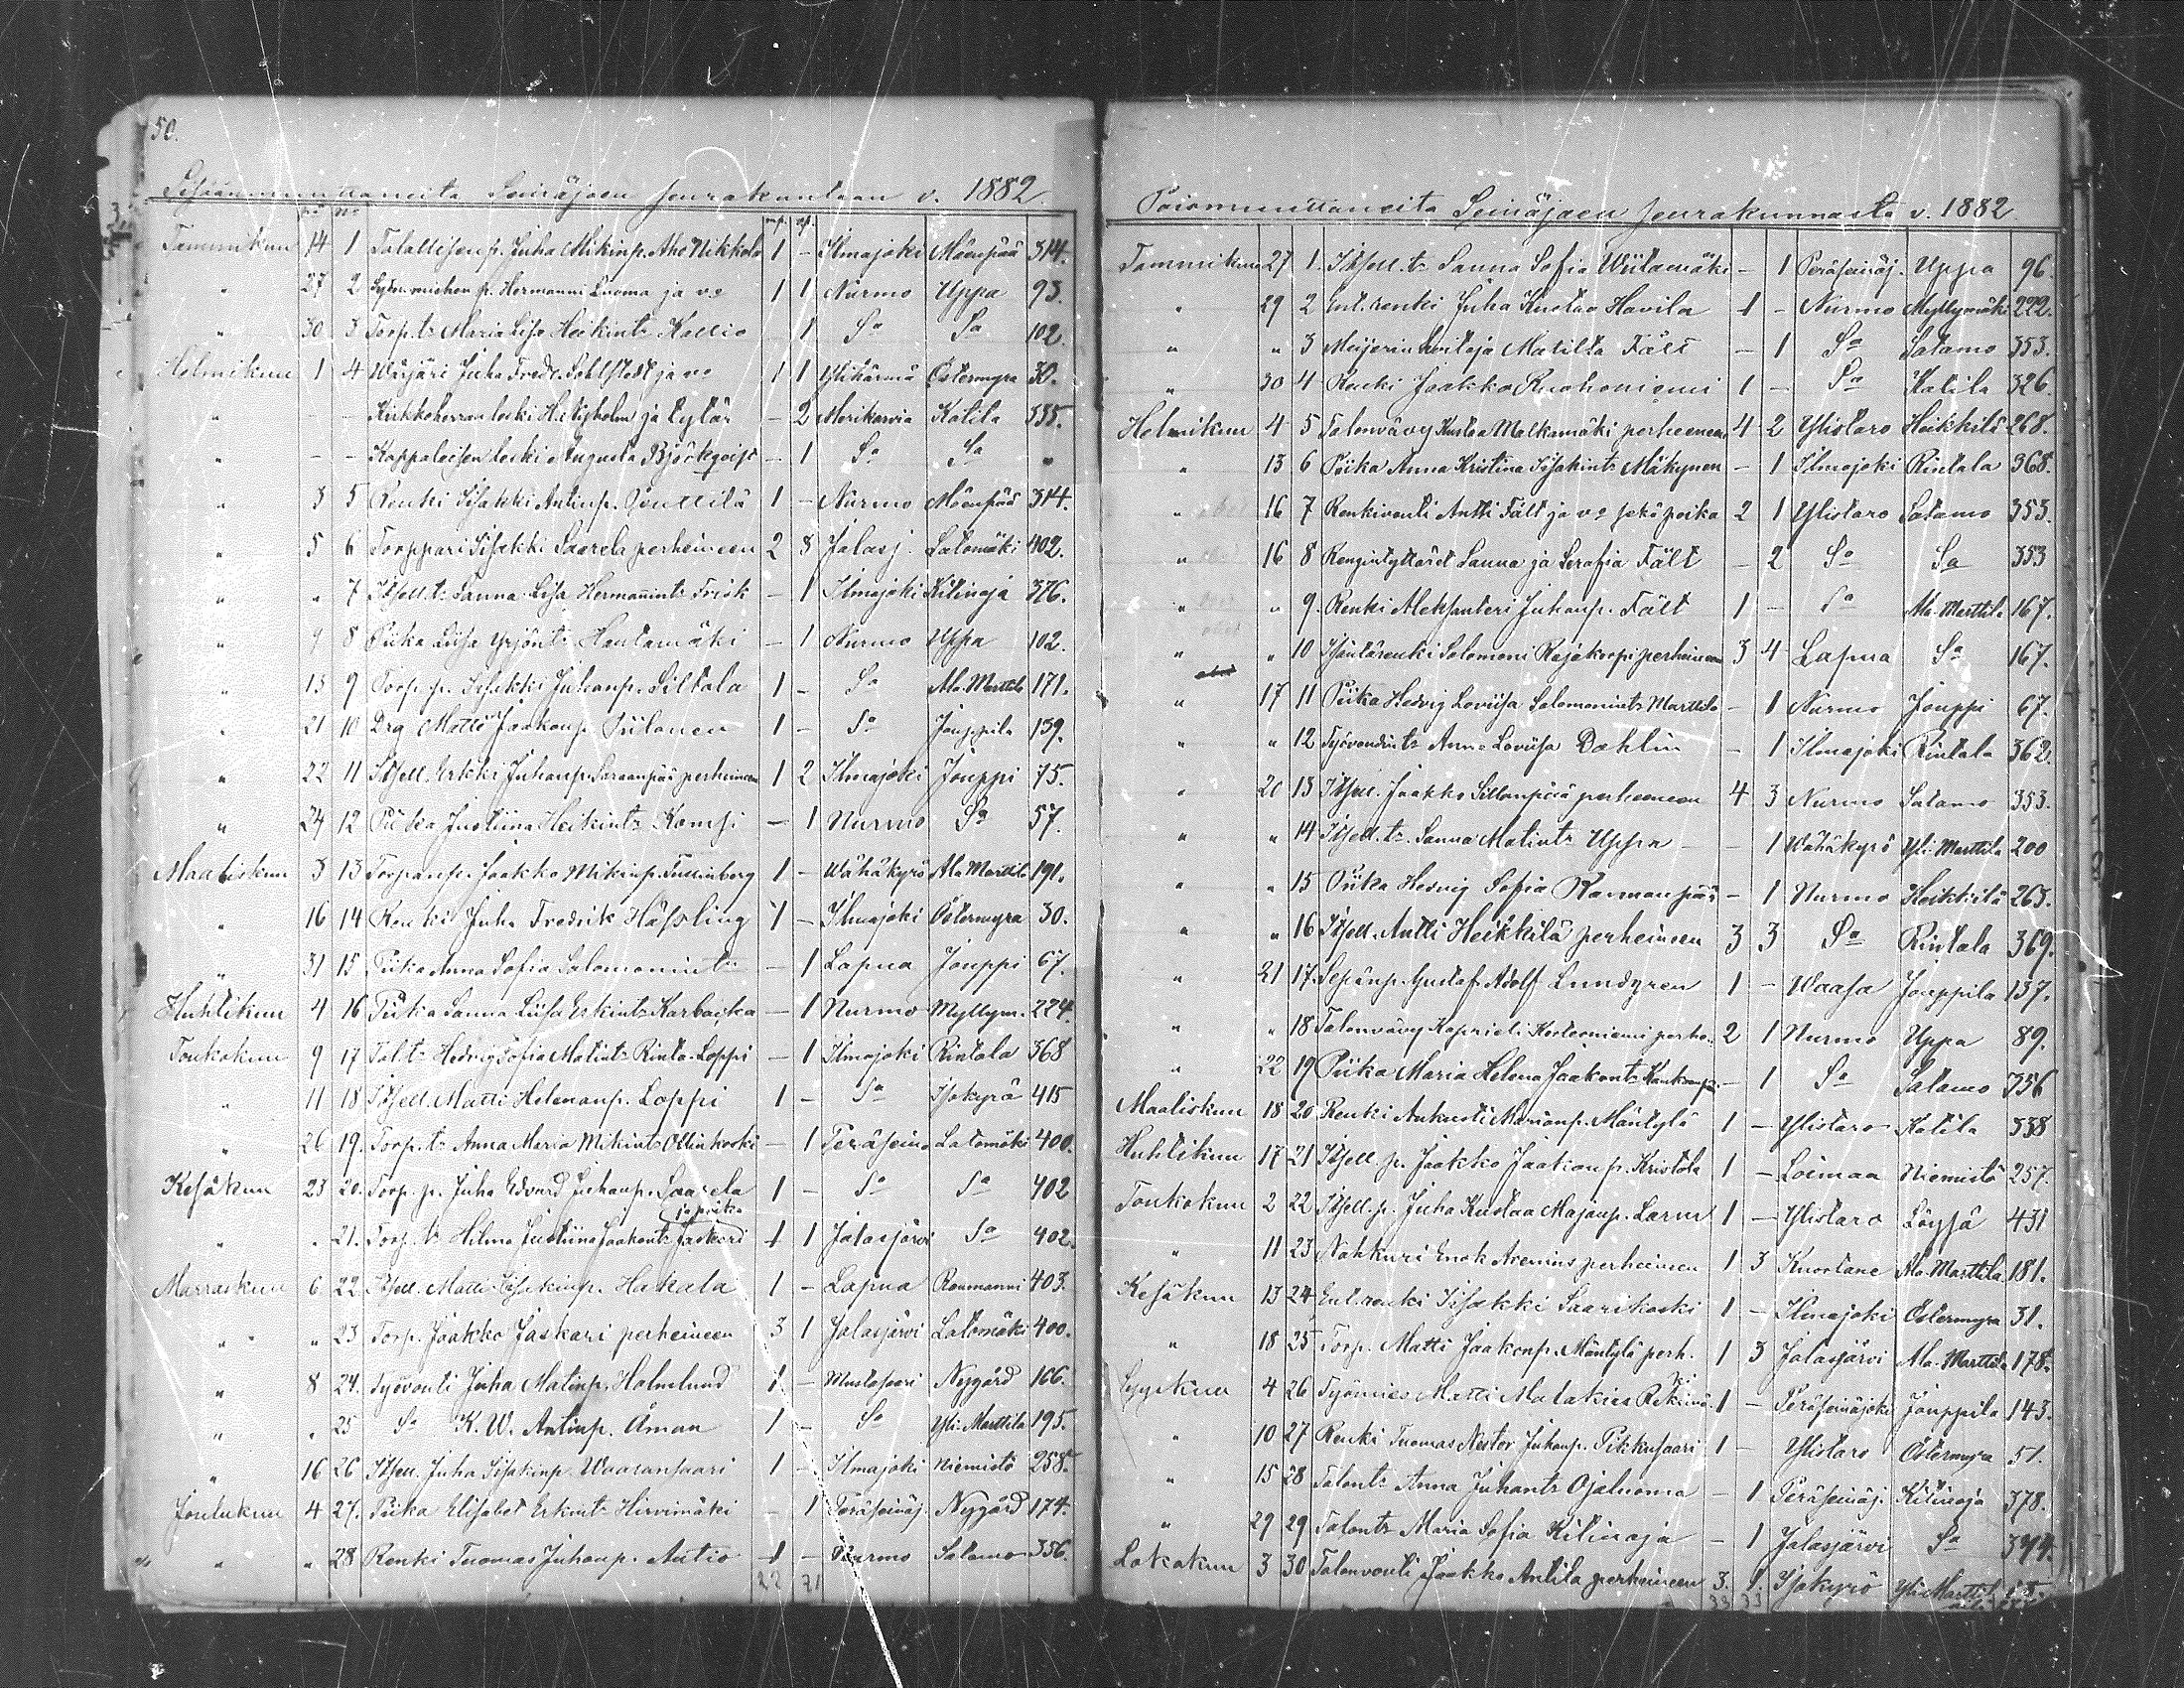 50.
Sisäänmuuttaneita Seinäjoen seurakuntaan v. 1882.
No No mp. vp.
Tammikun 14 1 Talollisenp. Juha Mikinp. Aho Nikkola 1 - Ilmajoki Mäenpää 314.
" 27 2 Hermanni Luoma ja vo 1 1 Nurmo Uppa 93.
" 30 3 Torp.tr Maria Lisa Heikintr Kallio 1 So So 102.
Helmikun 1 4 Juha Fredr. Sohlstedt ja vo 1 1 Ylihärmä Östermyra 30.
" - - Kirkkoherran leski ja tytär - 2 Merikarvia Katila 335.
" - - Kappalaisen leski Augusta Björkqvist - 1 So So "
" 3 5 Renki Iisakki Antinp. 1 - Nurmo Mäenpää 314.
" 5 6 Torppari Iisakki Saarela perheineen 2 3 Jalasj. Latomäki 402.
" " 7 Itsell.tr Sanna Lisa Hermannintr Frisk - 1 Ilmajoki Kitinoja 376.
" 9 8 Piika Liisa Yrjöntr Hautamäki - 1 Nurmo Uppa 102.
" 13 9 Torp.p. Iisakki Juhanp. Siltala 1 - So Ala-Marttila 171.
" 21 10 Drg Matti Jaakonp. Piilonen 1 - So Jouppila 139.
" 22 11 Itsell. Erkki Juhanp. perheineen 1 2 Ilmajoki Jouppi 75.
" 24 12 Piika Justiina Heikintr Kompi - 1 Nurmo So 57.
Maaliskun 3 13 Jaakko Mikinp. 1 - Wähäkyrö Ala Marttila 191.
" 16 14 Renki Juha Fredrik Hässling 1 - Ilmajoki Östermyra 30.
" 31 15 Piika Anna Sofia Salomonintr - 1 Lapua Jouppi 67.
Huhtikun 4 16 Piika Sanna Liisa Erkintr Karbacka - 1 Nurmo Myllym. 224.
Toukokun 9 17 Tal.tr Hedvig Sofia Matintr Rinta-Loppi - 1 Ilmajoki Rintala 368
" 11 18 Itsell. Matti Helenanp. Loppi 1 - So Isokyrö 415
" 26 19. Torp.tr Anna Maria Mikintr Ollinkoski - 1 Peräsein. Latomäki 400.
Kesäkun 23 20. Torp.p. Juha Edvard Juhanp. Saarela 1 - So So 402
ja poika
" " 21. Torp.tr Hilma Justiina Jaakontr Jaskari 1 1 Jalasjärvi So 402.
Marraskun 6 22 Itsell. Matti Iisakinp. Hakala 1 - Lapua Roumanni 403.
" " 23 Torp. Jaakko Jaskari perheineen 3 1 Jalasjärvi Latomäki 400.
" 8 24. Työvouti Juha Matinp. Holmlund 1 - Mustasaari Nygård 166.
" " 25 So K. W. Antinp. Åman 1 - So Yli-Marttila 195.
" 16 26 Itsell. Juha Iisakinp. Waaransaari 1 - Ilmajoki Niemistö 258.
Joulukun 4 27. Piika Elisabet Erkintr Hirvimäki - 1 Peräseinäj. Nygård 174.
" " 28 Renki Tuomas Juhanp. Autio 1 - Nurmo Salamo 356.
22 21
Poismuuttaneita Seinäjoen seurakunnasta v. 1882
Tammikun 27 1. Itsell.tr Sanna Sofia Wiitamäki - 1 Peräseinäj. Uppa 96.
" 29 2 Ent. renki Juha Kustaa Havila 1 - Nurmo Myllymäki 222.
" " 3 Meijerin hoitaja Matilta Fält - 1 So Salamo 353.
" 30 4 Renki Jaakko Ruohoniemi 1 - So Katila 326.
Helmikun 4 5 Talonvävy Kustaa Malkamäki perheineen 4 2 Ylistaro Heikkilä 268.
" 13 6 Piika Anna Kristiina Iisakintr Mäkynen - 1 Ilmajoki Rintala 368.
" 16 7 Renkivouti Antti Fält ja vo sekä poika 2 1 Ylistaro Salamo 353.
" 16 8 Rengintyttäret Sanna ja Serafia Fält - 2 So So 353
" " 9. Renki Aleksanteri Juhanp. Fält 1 - So Ala-Marttila 167.
" " 10 Isäntärenki Salomoni Rajakorpi perheineen 3 4 Lapua So 167.
" 17 11 Piika Hedvig Loviisa Salomonintr Marttila - 1 Nurmo Jouppi 67.
" " 12 Työvoudintr Anna Loviisa Dahlin - 1 Ilmajoki Rintala 362.
" 20 13 Itsell. Jaakko Sillanpää perheineen 4 3 Nurmo Salamo 353.
" " 14 Itsell.tr Sanna Matintr Uppa - 1 Wähäkyrö Yli-Marttila 200
" " 15 Piika Hedvig Sofia - 1 Nurmo Heikkilä 263.
" " 16 Itsell. Antti Heikkilä perheineen 3 3 So Rintala 369.
" 21 17. Sepänp. Gustaf Adolf Lundgren 1 - Waasa Jouppila 137.
" " 18 Talonvävy Kaprieli 2 1 Nurmo Uppa 89.
" 22 19 Piika Maria Helena Jaakontr - 1 So Salamo 356
Maaliskun 18 20 Renki Aukusti Marianp. Mäntylä 1 - Ylistaro Katila 338
Huhtikun 17 21 Itsell.p. Jaakko Jaakonp. Kristola 1 - Loimaa Niemistö 257.
Toukokun 2 22 Itsell.p. Juha Kustaa Majanp. 1 - Ylistaro Löysä 431
" 11 23 Nahkuri Enok Arenius perheineen 1 3 Kuortane Ala-Marttila 181.
Kesäkun 13 24 Ent. renki Iisakki Saarikoski 1 - Ilmajoki Östermyra 31.
" 18 25 Torp. Matti Jaakonp. Mäntylä perh. 1 3 Jalasjärvi Ala-Marttila 178.
Syyskun 4 26 Työmies Matti Malakias 1 - Peräseinäjoki Jouppila 143.
" 10 27 Renki Tuomas Nestor Juhanp. Pikkusaari 1 - Ylistaro Östermyra 51.
" 15 28 Talontr Anna Juhantr Ojaluoma - 1 Peräseinäj. Kitinoja 378.
" 29 29 Talontr Maria Sofia Kitinoja - 1 Jalasjärvi So
Lokakun 3 30 Talonvouti Jaakko Antila perheineen 3. 1. Isokyrö Yli-Marttila
33 33